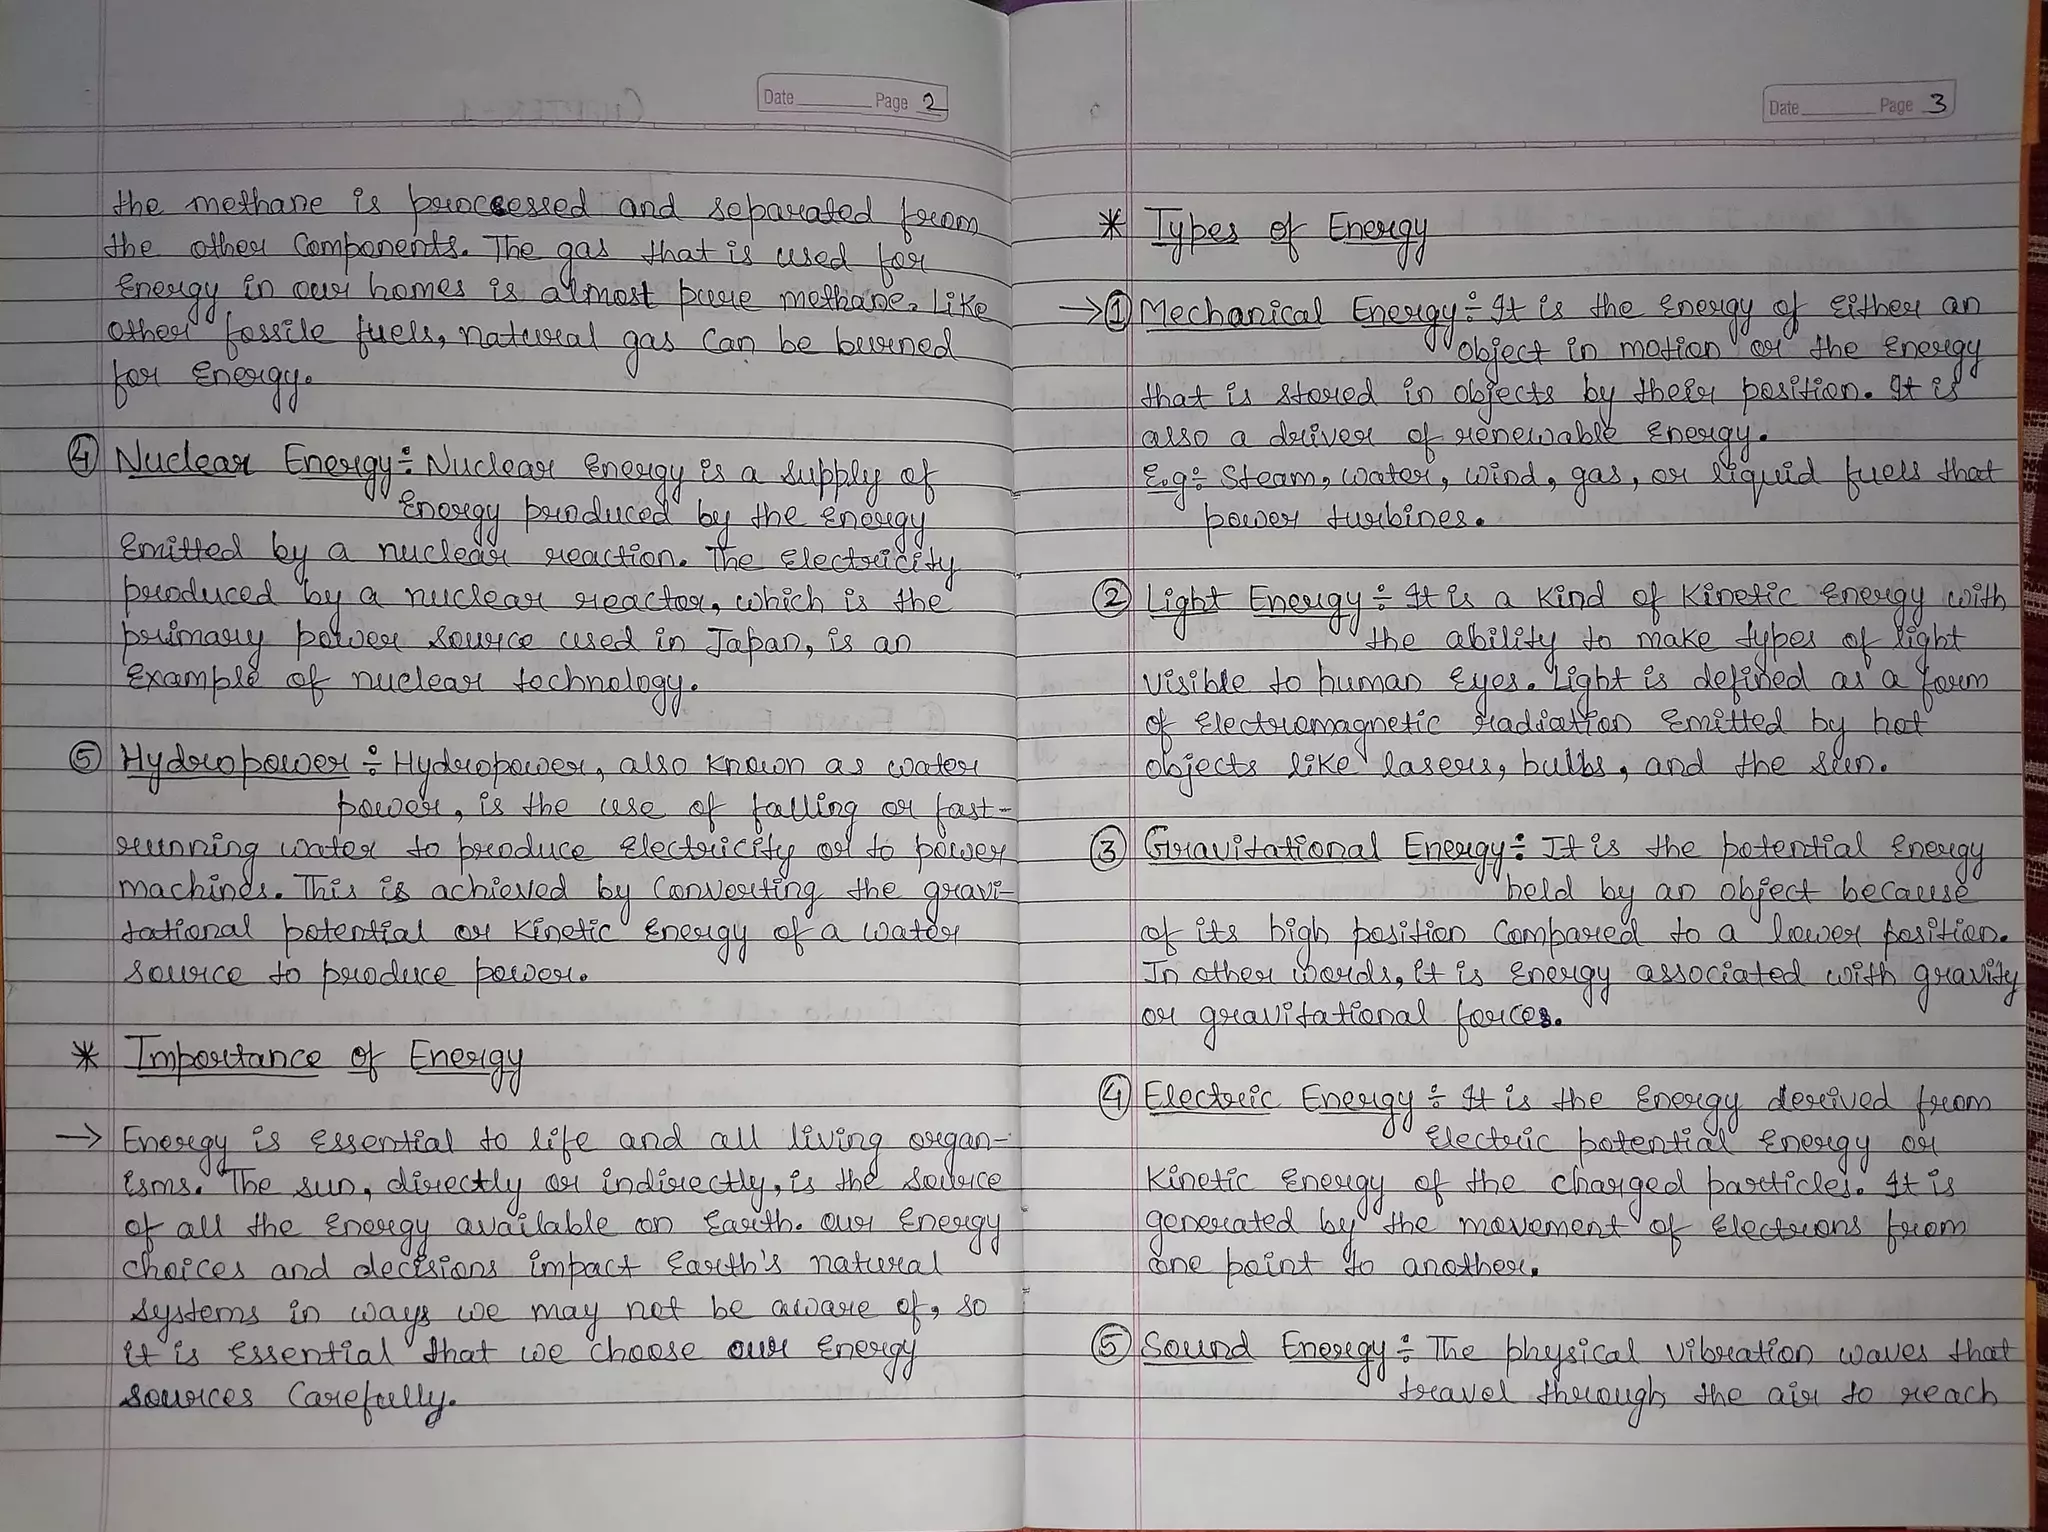 Date Page 2
the methane is proccessed and separated from
the other components. The gas that is used for
Energy in our homes is almost pure methane. Like
other fossile fuels, natural gas can be burned
for Energy.
④ Nuclear Energy :- Nuclear Energy is a supply of
Energy produced by the Energy
Emitted by a nuclear reaction. The Electricity
produced by a nuclear reactor, which is the
primary power source used in Japan, is an
Example of nuclear technology.
⑤ Hydropower :- Hydropower, also known as water
power, is the use of falling or fast-
running water to produce Electricity or to power
machines. This is achieved by converting the gravi-
tational potential or Kinetic Energy of a water
source to produce power.
* Importance of Energy
→ Energy is Essential to life and all living organ-
isms. The sun, directly or indirectly, is the source
of all the Energy available on Earth. our Energy
choices and decisions impact Earth's natural
systems in ways we may not be aware of, so
it is Essential that we choose our Energy
sources carefully.
Date Page 3
* Types of Energy
→ ① Mechanical Energy :- It is the Energy of Either an
object in motion or the Energy
that is stored in objects by their position. It is
also a driver of renewable Energy.
E.g :- Steam, water, wind, gas, or liquid fuels that
power turbines.
② Light Energy :- It is a kind of Kinetic Energy with
the ability to make types of light
visible to human Eyes. Light is defined as a form
of Electromagnetic radiation Emitted by hot
objects like lasers, bulbs, and the sun.
③ Gravitational Energy :- It is the potential Energy
held by an object because
of its high position compared to a lower position.
In other words, it is Energy associated with gravity
or gravitational forces.
④ Electric Energy :- It is the Energy dereived from
Electric potential Energy or
Kinetic Energy of the charged particles. It is
generated by the movement of Electrons from
one point to another.
⑤ Sound Energy :- The physical vibration waves that
travel through the air to reach